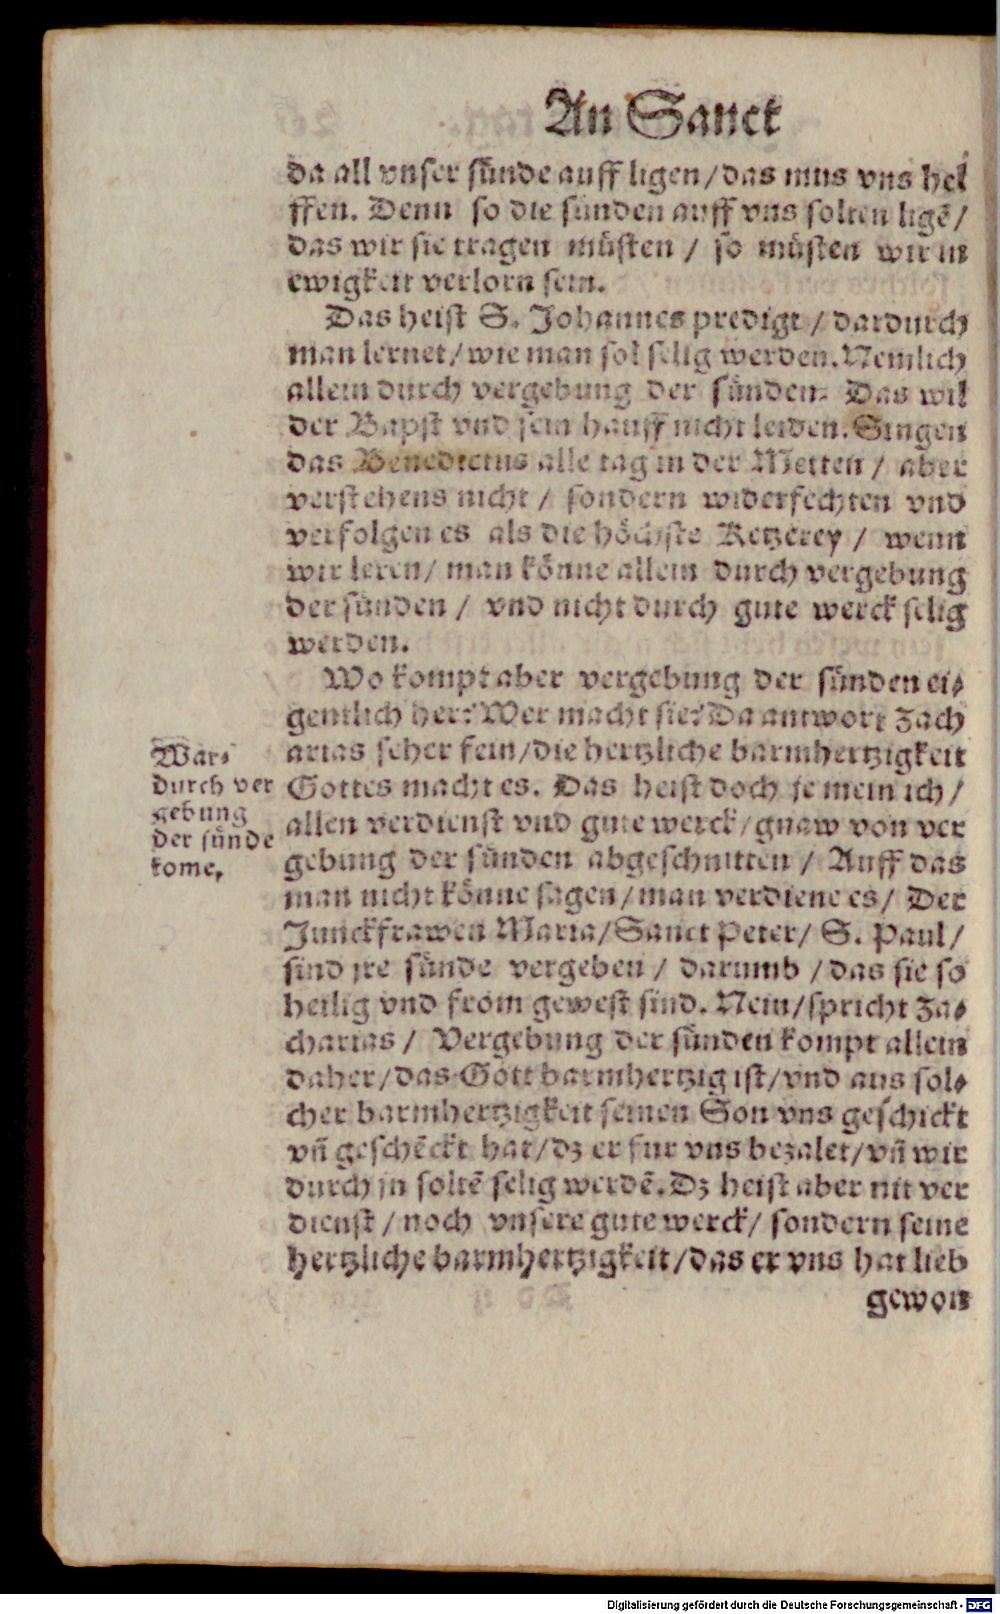 An Sanct
da all vnser sünde auff ligen/das mus vns hel
ffen. Denn so die sünden auff vns solten ligē/
das wir sie tragen müsten / so müsten wir in
ewigkeit verlorn sein.
Das heist S. Johannes predigt / dardurch
man lernet/wie man sol selig werden. Nemlich
allein durch vergebung der sünden. Das wil
der Bapst vnd sein hauff nicht leiden. Singen
das Benedictus alle tag in der Metten / aber
verstehens nicht / sondern widerfechten vnd
verfolgen es als die höchste Ketzerey / wenn
wir leren/ man könne allein durch vergebung
der sünden / vnd nicht durch gute werck selig
werden.
Wo kompt aber vergebung der sünden ei⸗
gentlich her? Wer macht sie? Da antwort Zach
arias seher fein/die hertzliche barmhertzigkeit
Gottes macht es. Das heist doch je mein ich/
allen verdienst vnd gute werck/gnaw von ver
gebung der sünden abgeschnitten / Auff das
man nicht könne sagen/man verdiene es/ Der
Junckfrawen Maria/Sanct Peter/ S. Paul/
sind jre sünde vergeben / darumb /das sie so
heilig vnd from gewest sind. Nein/spricht Za⸗
charias / Vergebung der sünden kompt allein
daher/das Gott barmhertzig ist/vnd aus sol⸗
cher barmhertzigkeit seinen Son vns geschickt
vñ geschēckt hat/dz er fur vns bezalet/vñ wir
durch jn soltē selig werdē. Dz heist aber nit ver
dienst /noch vnsere gute werck/ sondern seine
hertzliche barmhertzigkeit/das er vns hat lieb
gewon
War⸗
durch ver
gebung
der sünde
kome.
Digitalisierung gefördert durch die Deutsche Forschungsgemeinschaft - DFG